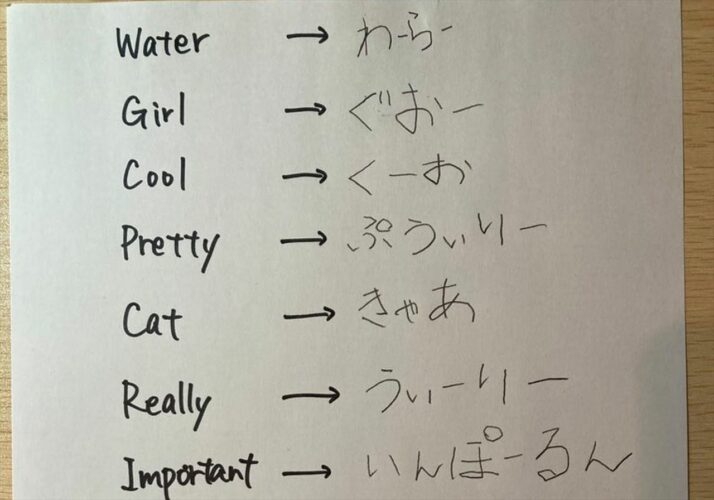 Water → わーらー
Girl → ぐおー
Cool → くーお
Pretty → ぷうぃりー
Cat → きゃあ
Really → うぃーりー
Important → いんぽーるん